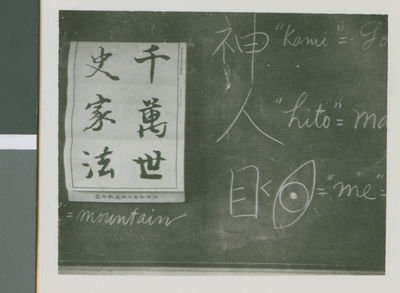 千萬世
史家法
神 "Kami" = Go
人 "hito" = ma
目 < = "me" =
" = mountain